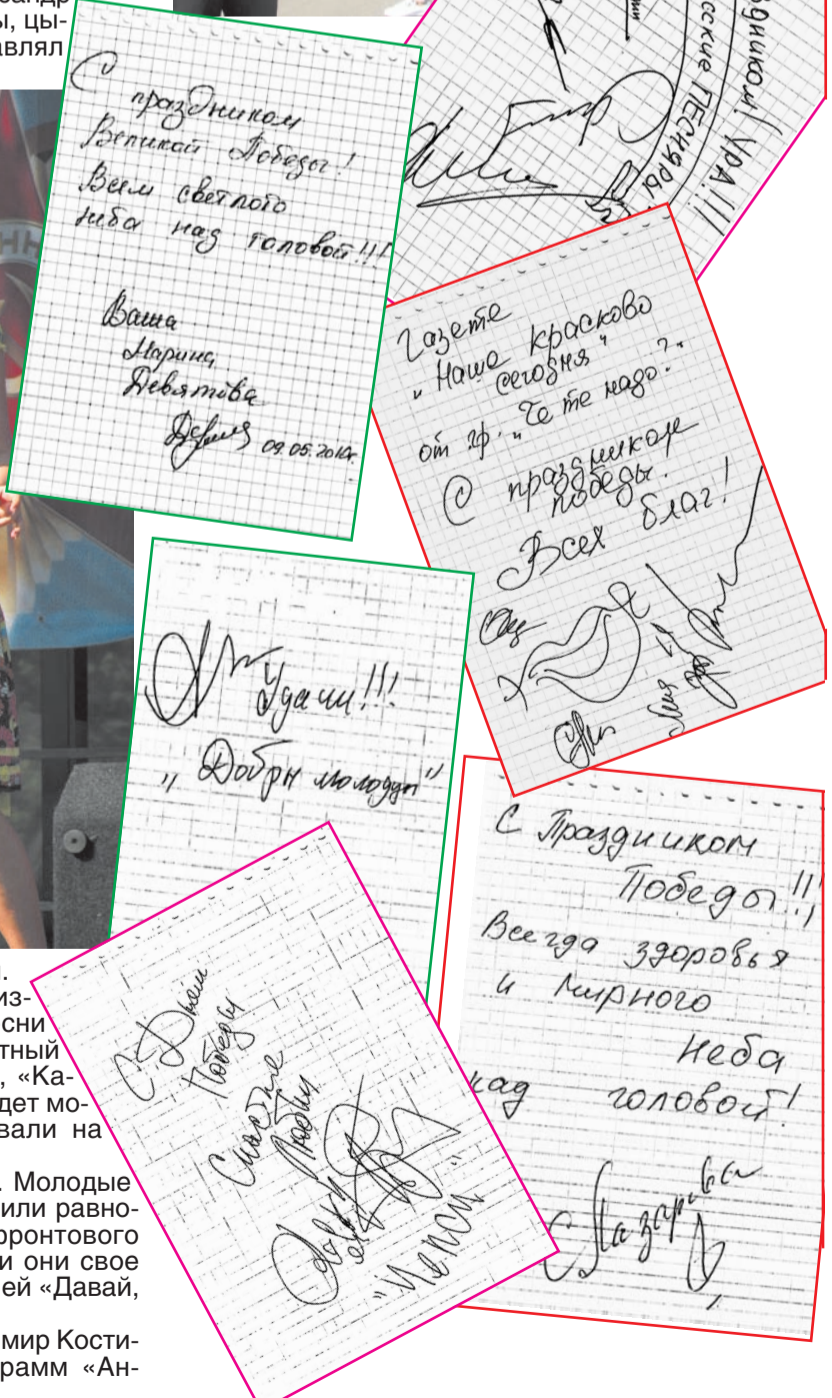 сандр
ы, цы-
авлял
С
праздником
Великой Победы!
Всем светлого
неба над головой!!!
Ваша
Марина
Девятова
09.05.2010г.
здником! УРА!!!
усские ПЕСНЯРЫ
Газете
„Наше Красково
сегодня"
от гр. „Че те надо?"
С праздником
победы.
Всех благ!
Удачи!!!
„Добры молодцы"
С Праздником
Победы!!!
Всегда здоровья
и мирного
Неба
над головой!
Лазарева
С Днем
Победы
Счастье
Любви
"Чепси"
из-
сни
тный
, «Ка-
дет мо-
вали на
. Молодые
или равно-
фронтового
и они свое
ей «Давай,
мир Кости-
рамм «Ан-